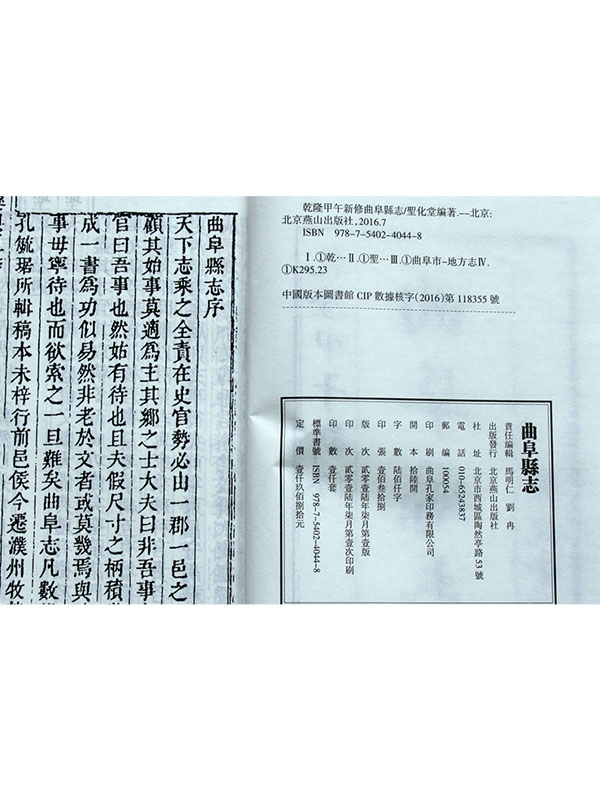 乾隆甲午新修曲阜縣志/聖化堂編著.--北京:
北京燕山出版社,2016.7
ISBN 978-7-5402-4044-8
Ⅰ.①乾… Ⅱ.①聖… Ⅲ.①曲阜市-地方志Ⅳ.
①K295.23
中國版本圖書館 CIP 數據核字(2016)第 118355 號
曲阜縣志
責任編輯 馬明仁 劉冉
出版發行 北京燕山出版社
社址 北京市西城區陶然亭路53號
電話 010-65243837
郵編 100054
印刷 曲阜孔家印務有限公司
開本 拾陸開
字數 陸佰仟字
印張 壹佰叁拾捌
版次 貳零壹陸年柒月第壹版
印次 貳零壹陸年柒月第壹次印刷
印數 壹仟套
標準書號 ISBN 978-7-5402-4044-8
定價 壹仟玖佰捌拾元
曲阜縣志序
天下志乘之全責在史官勢必由一郡一邑之
顧其始事莫適爲主其鄉之士大夫曰非吾事
官曰吾事也然姑有待也且夫假尺寸之柄積
成一書爲功似易然非老於文者或莫幾焉與
事毋寧待也而欲索之一旦難矣曲阜志凡數
孔毓琚所輯稿本未梓行前邑侯今遷濮州牧